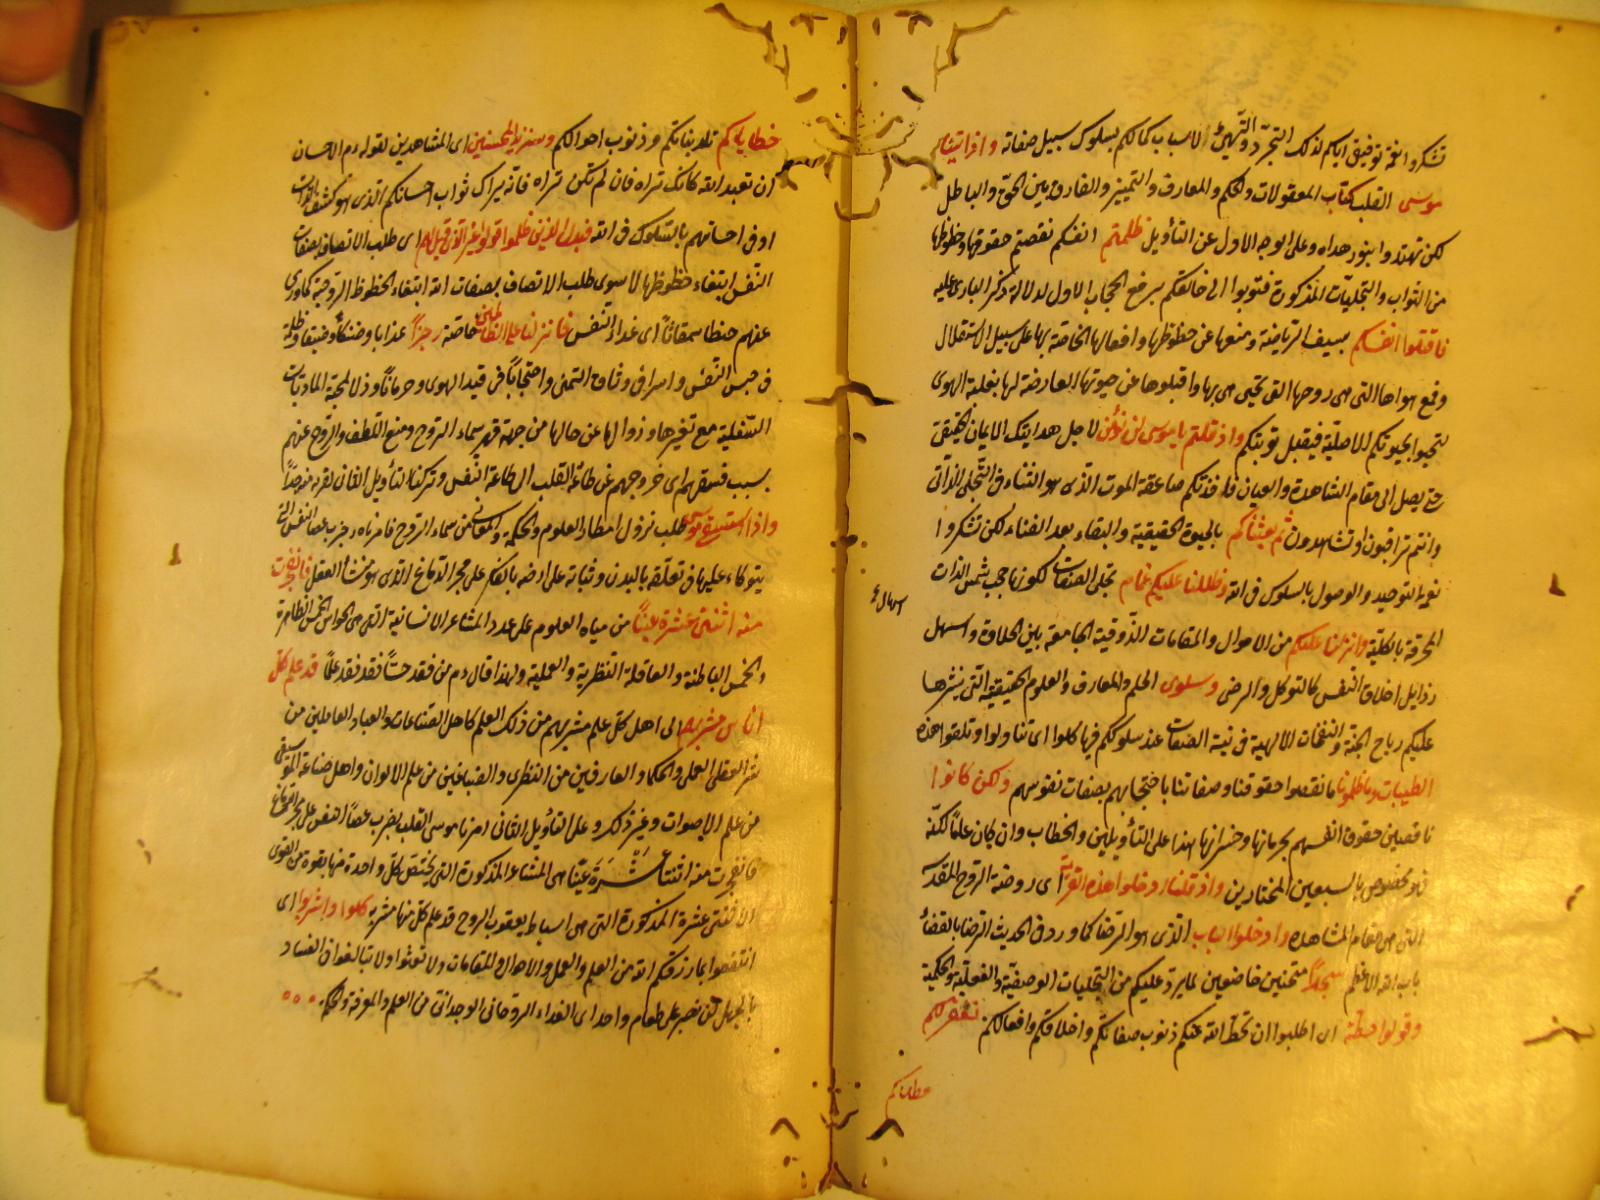 تشكروا نعمة توفيق اياكم لذلك التجرد والتهيئ الاسباب كمالكم بسلوك سبيل صفاته واذ اتينا
موسى القلب كتاب المعقولات والحكم والمعارف والتمييز والفارق بين الحق والباطل
لكن تهتدوا بنور هداه وعلى الوجه الاول عن التأويل ظلمتم انفسكم نقصتم حقوقها وحظوظها
من الثواب والتجليات المذكورة فتوبوا الى خالقكم برفع الحجاب الاول لدلالة ذكر البارى عليه
فاقتلوا انفسكم بسيف الرياضة ومنعها عن حظوظها وافعالها الخاصة بها على سبيل الاستقلال
وقمع هواها التى هى روحها التى تحيى هى بها واقبلوها عن حيوتها العارضة لها بغلبة الهوى
لتحيوا بحيوتكم الاصلية فيقبل توبتكم واذ قلتم يا موسى لن نؤمن لاجل هدايتك الايمان الحقيقى
حتى يصل الى مقام المشاهدة والعيان فاخذتكم صاعقة الموت الذى هو الفناء فى التجلى الذاتى
وانتم تراقبون او تشاهدون ثم بعثناكم بالحيوة الحقيقية والبقاء بعد الفناء لكى تشكروا
نعمة التوحيد والوصول بالسلوك فى الله وظللنا عليكم غمام تجلى الصفات لكونها حجب شمس الذات
المحرقة بالكلية وانزلنا عليكم من الاحوال والمقامات الذوقية الجامعة بين الحلاوة واسهال
رذايل اخلاق النفس كالتوكل والرضى وسلوى الحكم والمعارف والعلوم الحقيقية التى ينشرها
عليكم رياح الجنة والنفحات الالهية فى تيه الصفات عند سلوككم فيها كلوا اى تناولوا وتلقوا هذه
الطيبات وما ظلمونا ما نقصوا حقوقنا وصفاتنا باحتجابهم بصفات نفوسهم ولكن كانوا
ناقصين حقوق انفسهم بحرمانها وخسرانها هذا على التأويلين والخطاب وان كان عاما لكنه
مخصوص بالسبعين المختارين واذ قلنا ادخلوا هذه القرية اى روضة الروح المقدسة
التى هى مقام المشاهدة وادخلوا الباب الذى هو الرضا كما ورد فى الحديث الرضا بالقضاء
باب الله الاعظم سجدا منحنين خاضعين لما يرد عليكم من التجليات الوصفية والفعلية والحكمية
وقولوا حطة اى اطلبوا ان يحط الله عنكم ذنوب صفاتكم واخلاقكم وافعالكم نغفر لكم
خطاياكم
اسهال
خطاياكم تلويناتكم وذنوب احوالكم وسنزيد المحسنين اى المشاهدين لقوله م الاحسان
ان تعبد الله كانك تراه فان لم تكن تراه فانه يراك ثواب احسانكم الذى هو كشف الذات
اوفى احسانهم بالسلوك فى الله فبدل الذين ظلموا قولا غير الذى قيل لهم اى طلب الاتصاف بصفات
النفس ابتغاء حظوظها لا سوى طلب الاتصاف بصفات الله ابتغاء الحظوظ الروحية كما روى
عنهم حنطا سمقاثا اى غداء النفس فانزلنا على الظالمين خاصة رجزا عذابا وضنكا وضيقا وظلمة
فى حبس النفس واسرا فى وثاق التمنى واحتجابا فى قيد الهوى وحرمانا وذلا لمحبة الماديات
السفلية مع تغيرها وزوالها عن حالها من جهة قهر سماء الروح ومنع اللطف والروح عنهم
بسبب فسقهم اى خروجهم عن طاعة القلب الى طاعة النفس وتركنا التأويل الثانى لقربه منه جدا
واذ استسقى موسى طلب نزول امطار العلوم والحكم والمعانى من سماء الروح فامرناه بضرب عصا النفس التى
يتوكاء عليها فى تعلقه بالبدن وثباته على ارضه بالفكر على حجر الدماغ الذى هو منشأ العقل فانفجرت
منه اثنتى عشرة عينا من مياه العلوم على عدد المشاعر الانسانية التى هى الحواس الخمس الظاهرة
والخمس الباطنة والعاقلة النظرية والعملية ولهذا قال م من فقد حسا فقد فقد علما قد علم كل
اناس مشربهم اى اهل كل علم مشربهم من ذلك العلم كاهل الصناعات والعباد العاملين من
العقل العملى والحكماء والعارفين من النظرى والصباغين من علم الالوان واهل صناعة الموسيقى
من علم الاصوات وغير ذلك وعلى التأويل الثانى امرنا موسى القلب بضرب عصا النفس على حجر الدماغ
فانفجرت منه اثنتا عشرة عينا هى المشاعر المذكورة التى يختص كل واحدة منها بقوة من القوى
الاثنتى عشرة المذكورة التى هى اسباط يعقوب الروح قد علم كل منها مشربه كلوا واشربوا اى
انتفعوا بما رزقكم الله من العلم والعمل والاحوال والمقامات ولا تعثوا ولا تبالغوا فى الفساد
بالجهل لن نصبر على طعام واحد اى الغداء الروحانى الوجدانى من العلم والمعرفة والحكمة